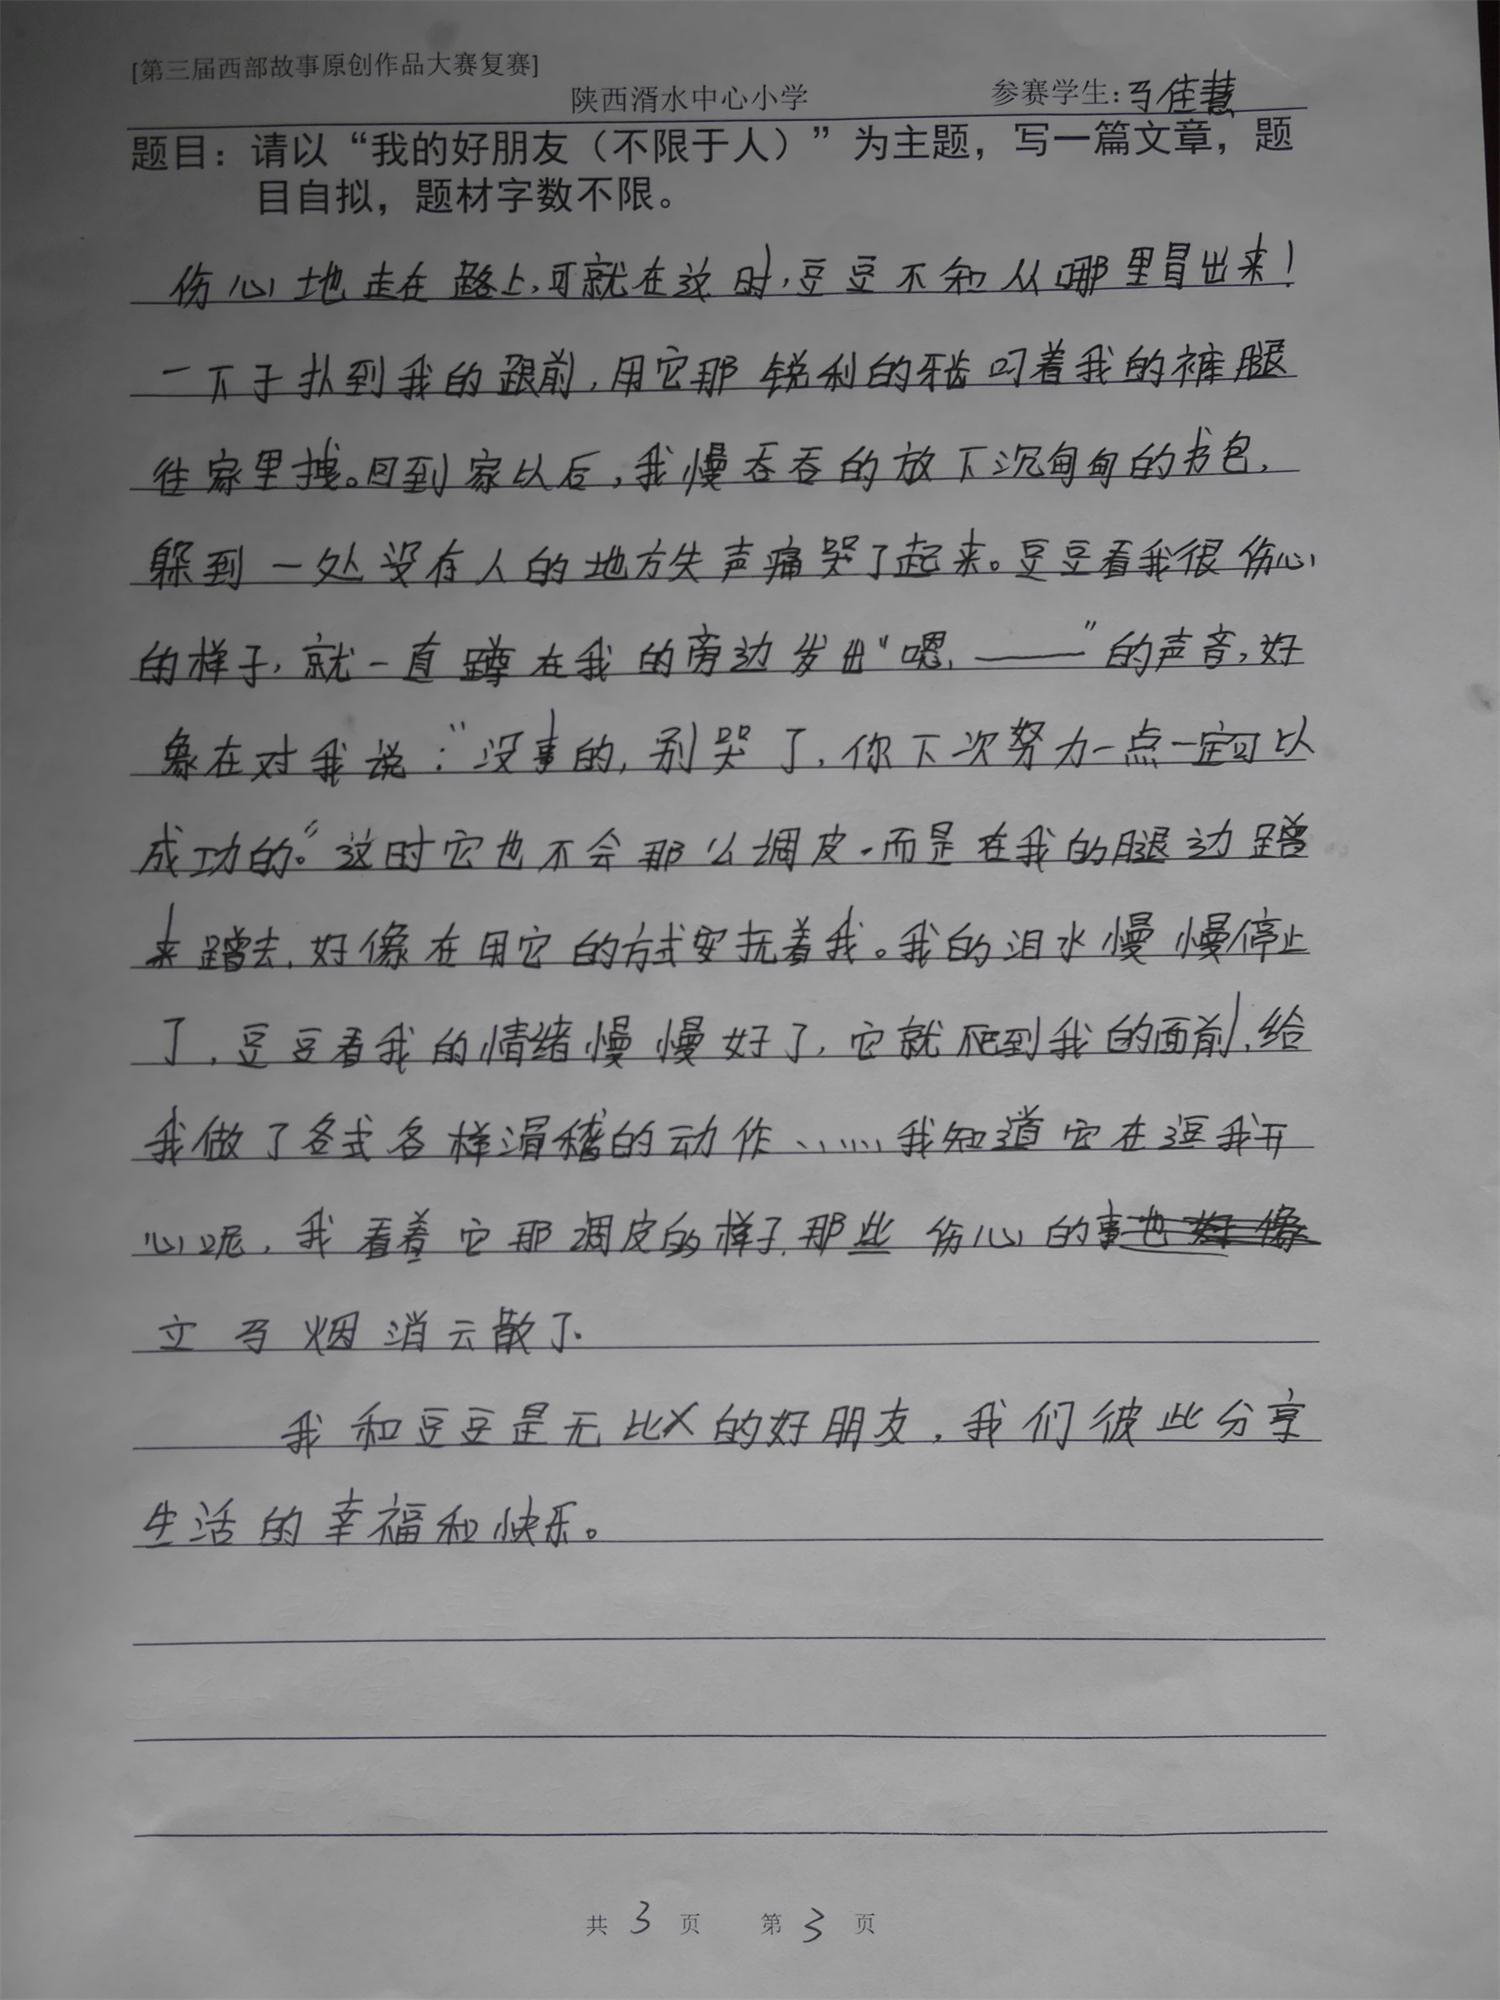 [第三届西部故事原创作品大赛复赛]
陕西湑水中心小学 参赛学生:马佳慧
题目：请以“我的好朋友（不限于人）”为主题，写一篇文章，题
目自拟，题材字数不限。
伤心地走在路上,可就在这时,豆豆不知从哪里冒出来！
一下子扑到我的跟前,用它那锐利的牙齿叼着我的裤腿
往家里拽。回到家以后,我慢吞吞的放下沉甸甸的书包,
躲到一处没有人的地方失声痛哭了起来。豆豆看我很伤心
的样子,就一直蹲在我的旁边发出“嗯,——”的声音,好
象在对我说:“没事的,别哭了,你下次努力一点一定可以
成功的。”这时它也不会那么调皮,而是在我的腿边蹭
来蹭去,好像在用它的方式安抚着我。我的泪水慢慢停止
了,豆豆看我的情绪慢慢好了,它就爬到我的面前,给
我做了各式各样滑稽的动作……我知道它在逗我开
心呢,我看着它那调皮的样子,那些伤心的事也好像
立马烟消云散了.
我和豆豆是无比的好朋友,我们彼此分享
生活的幸福和快乐。
共 3 页 第 3 页